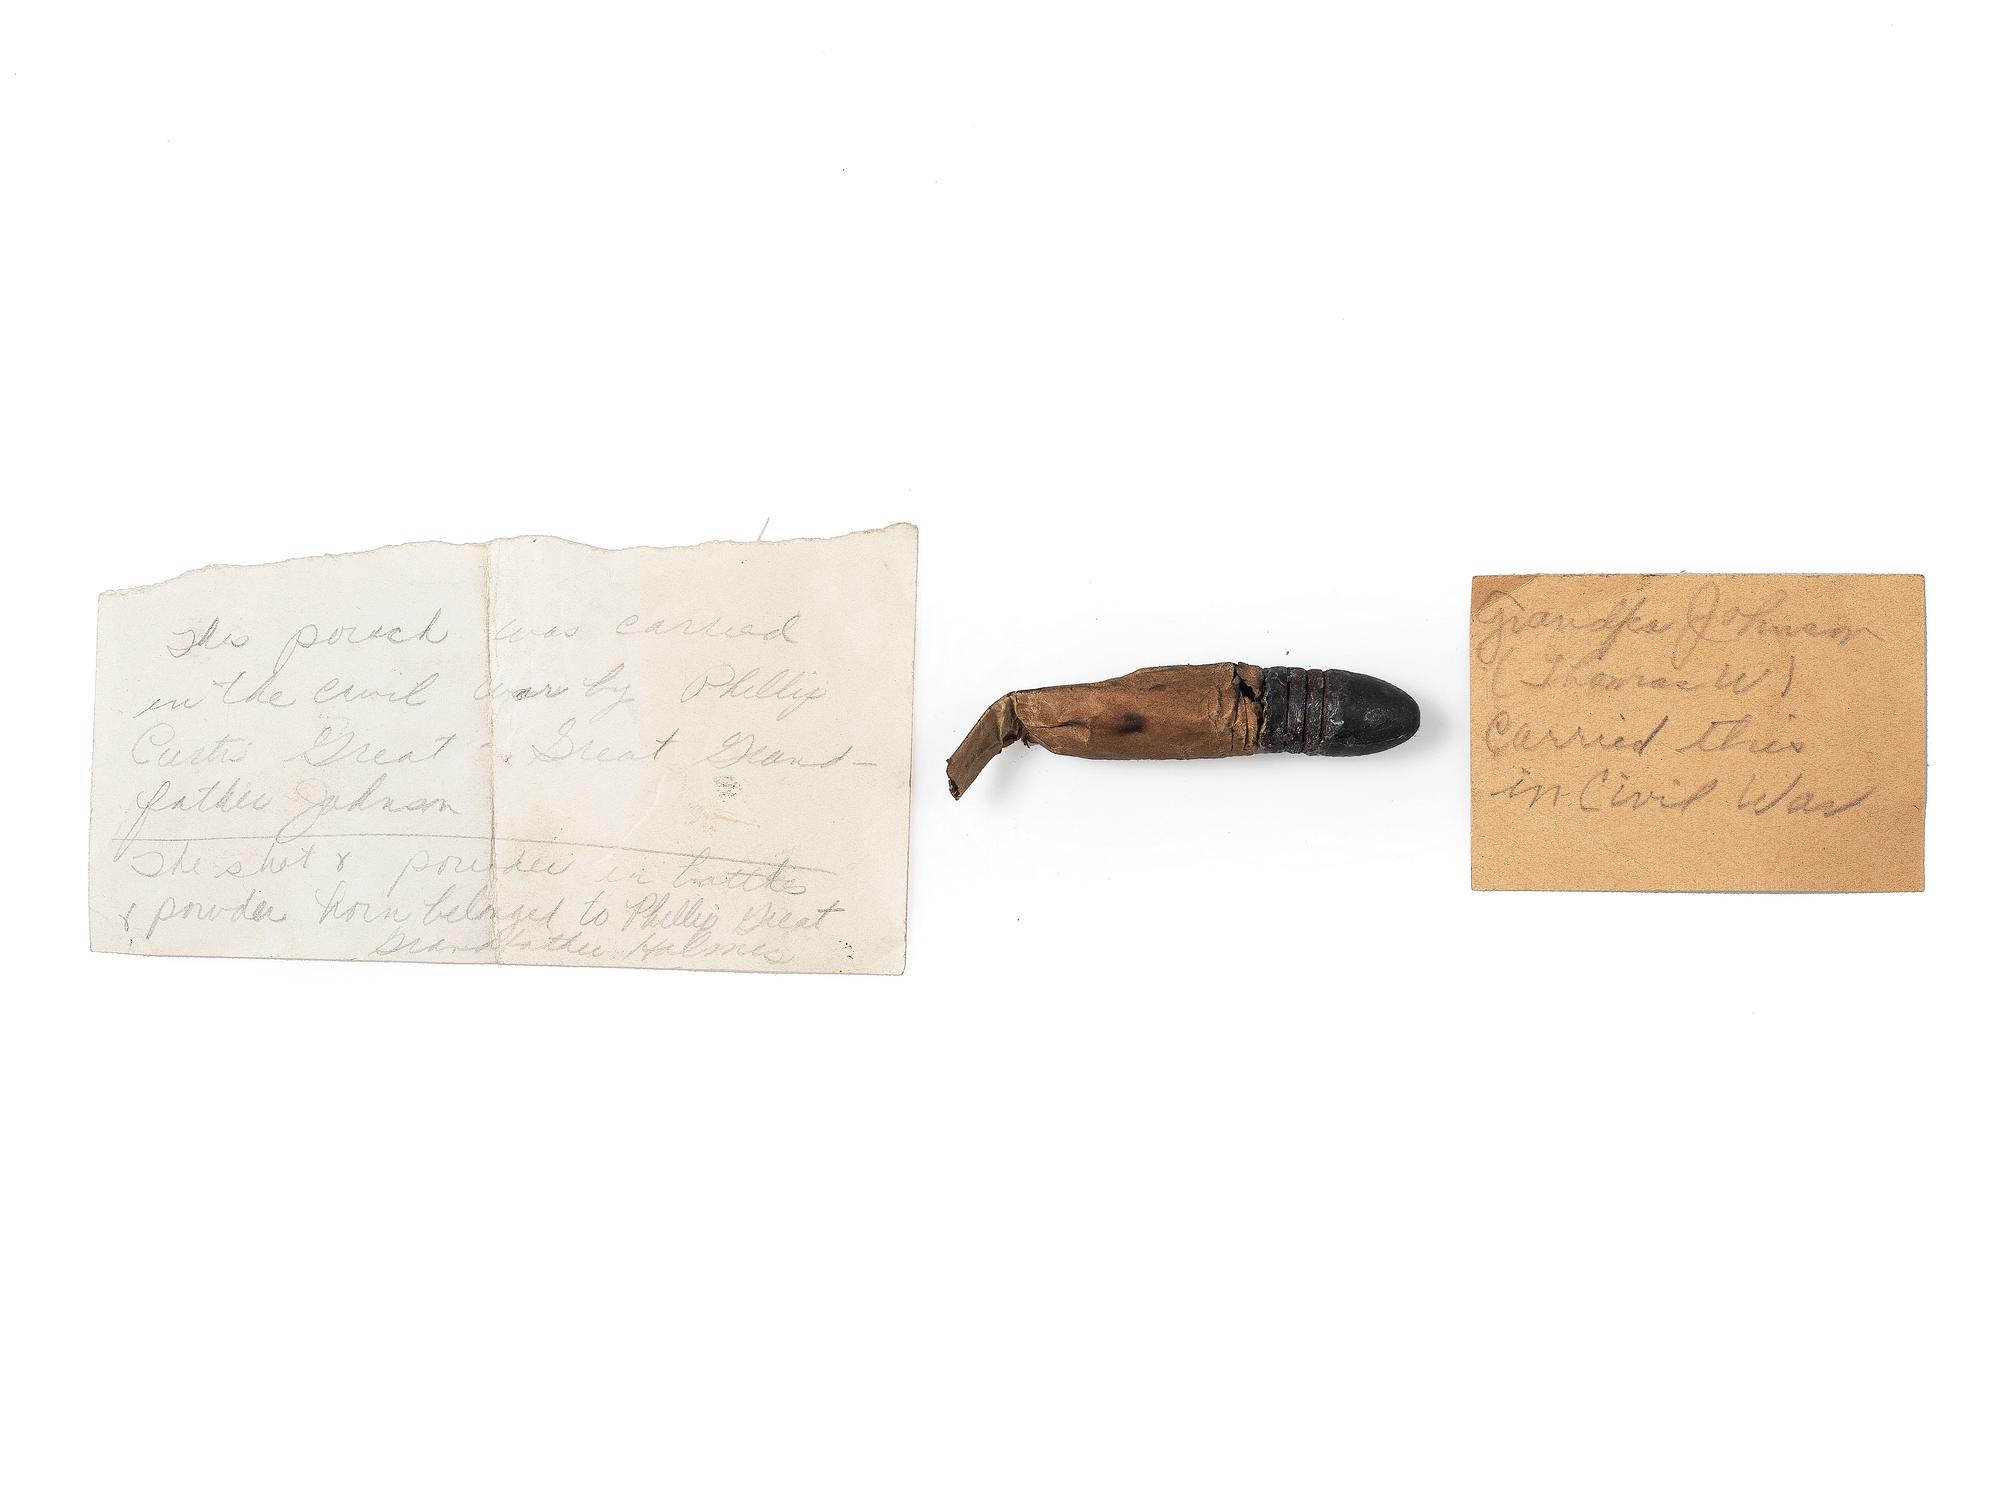 This pouch was carried
in the civil war by Phillip
Curtis Great - Great Grand-
father Johnson
The shot & powder in bottles
& powder horn belonged to Phillip Great
Grandfather Holmes
Grandpa Johnson
(Thomas W)
Carried this
in Civil War